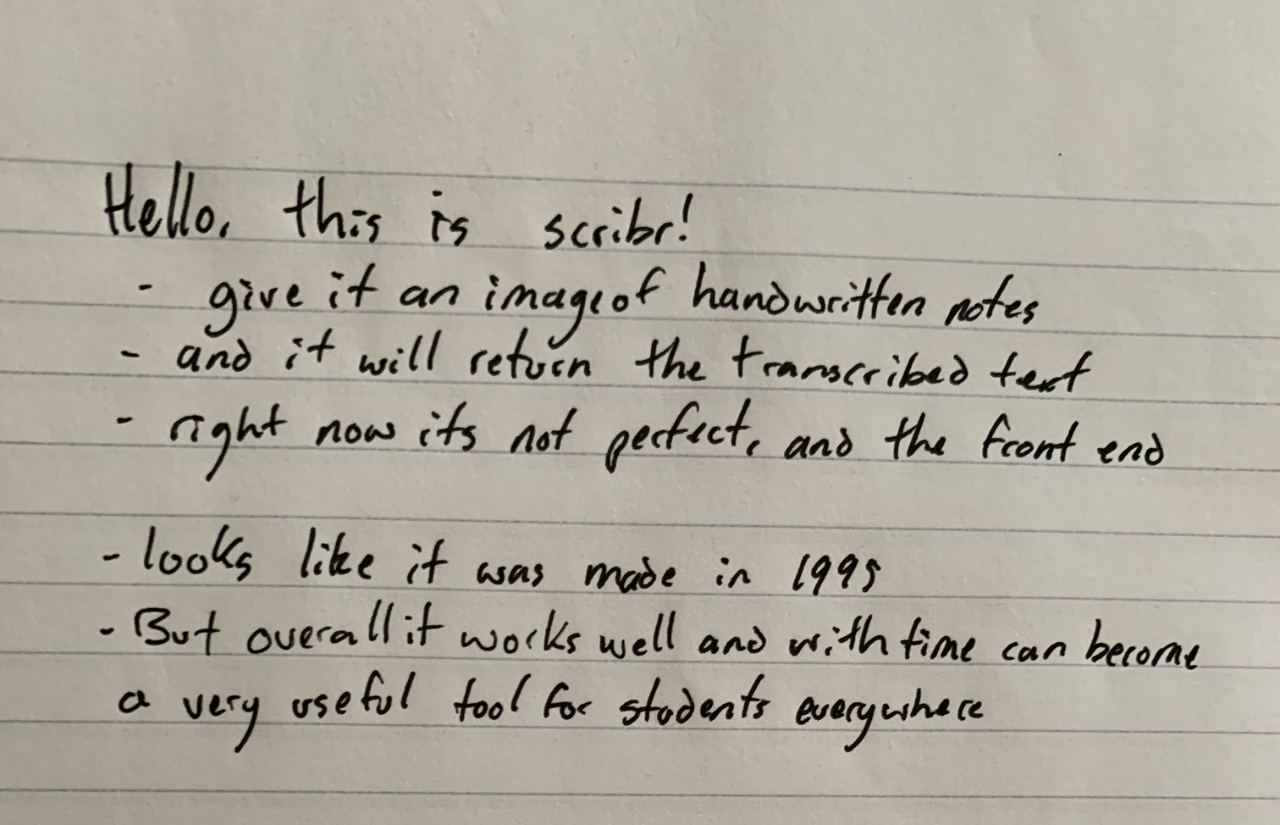 Hello, this is scribr!
- give it an image of handwritten notes
- and it will return the transcribed text
- right now its not perfect, and the front end
- looks like it was made in 1995
- But overall it works well and with time can become
a very useful tool for students everywhere